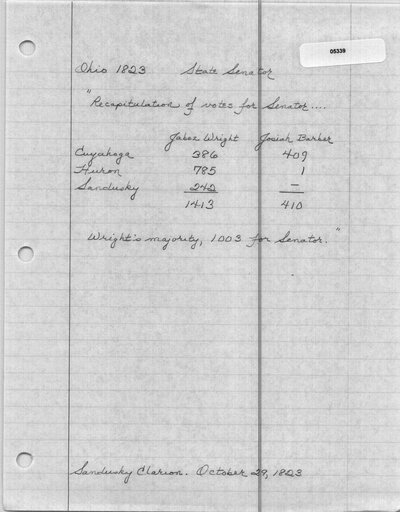 05339
Ohio 1823 State Senator
"Recapitulation of votes for Senator....
Jabez Wright Josiah Barber
Cuyahoga 386 409
Huron 785 1
Sandusky 242 —
1413 410
Wright's majority, 1003 for Senator."
Sandusky Clarion. October 29, 1823